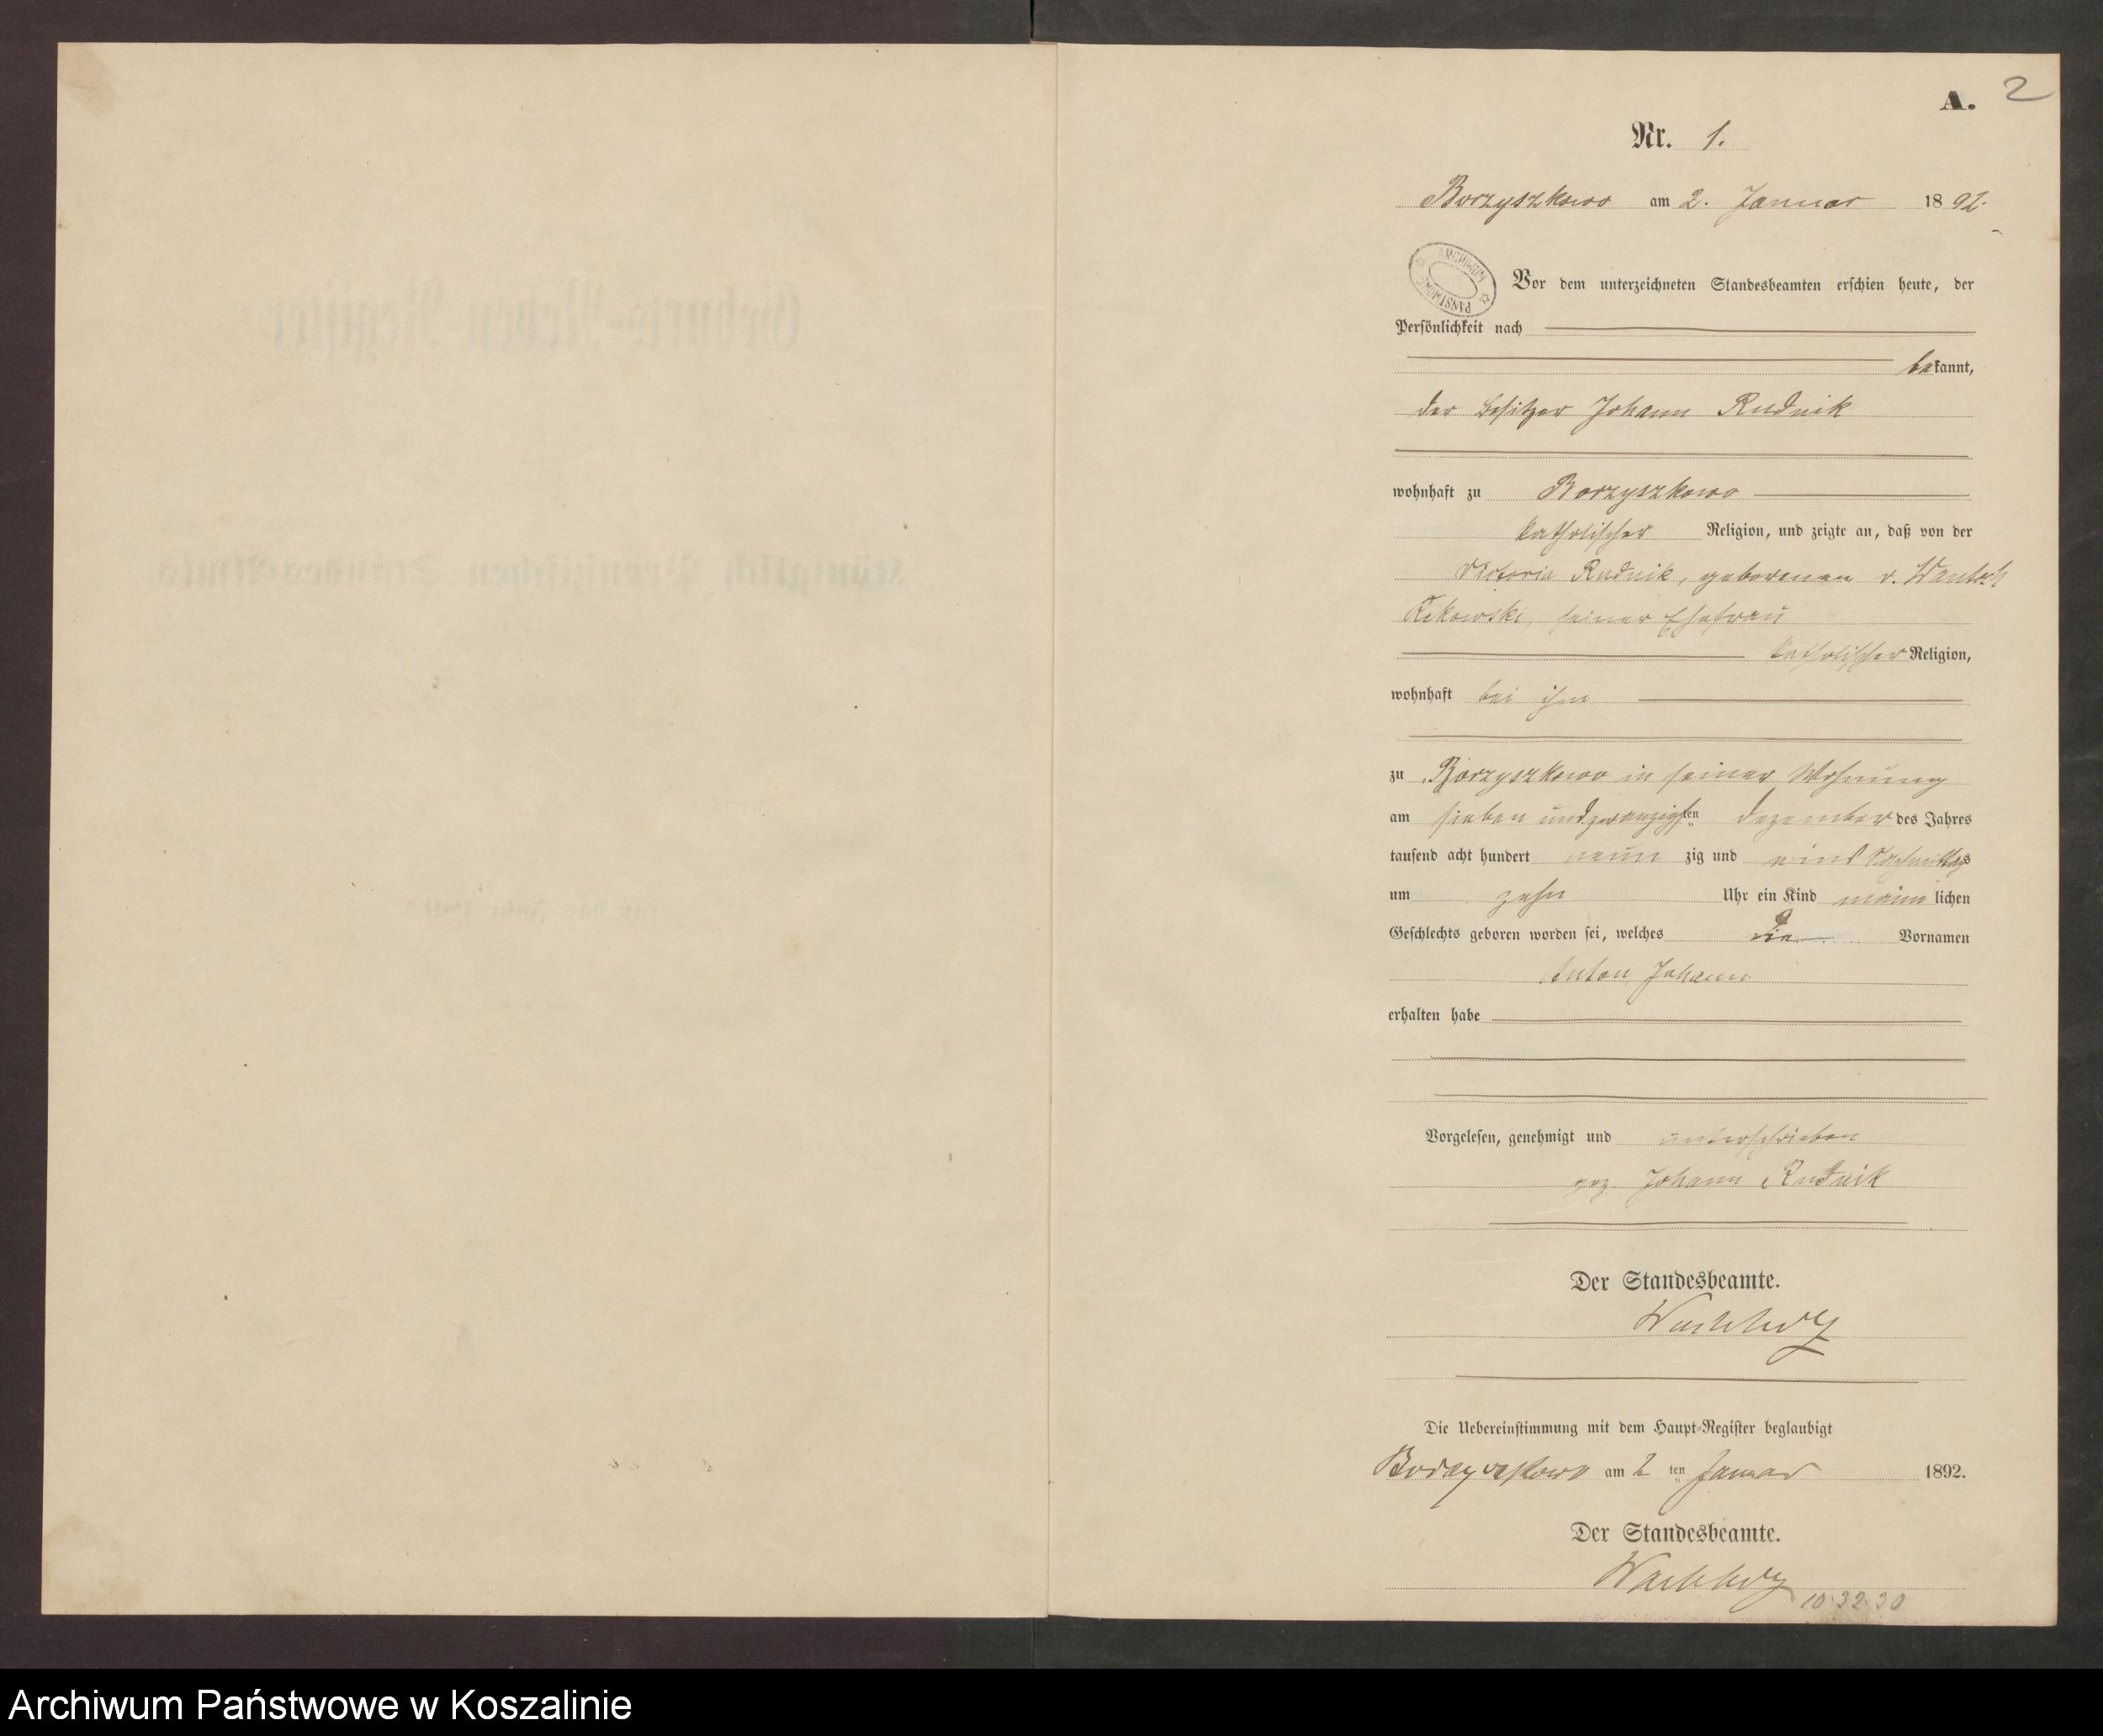 A. 2
Nr. 1.
Borzyszkowo am 2. Januar 1892.
ARCHIWUM PAŃSTWOWE
Vor dem unterzeichneten Standesbeamten erschien heute, der
Persönlichkeit nach
bekannt,
der Besitzer Johann Rudnik
wohnhaft zu Borzyszkowo
katholischer Religion, und zeigte an, daß von der
Victoria Rudnik, geborenen v. Wantoch
Rekowski, seiner Ehefrau
katholischer Religion,
wohnhaft bei ihm
zu Borzyszkowo in seiner Wohnung
am sieben und zwanzigsten Dezember des Jahres
tausend acht hundert neun zig und eins
um zehn Uhr ein Kind männlichen
Geschlechts geboren worden sei, welches die Vornamen
Anton Johann
erhalten habe
Vorgelesen, genehmigt und unterschrieben
gez. Johann Rudnik
Der Standesbeamte.
Die Uebereinstimmung mit dem Haupt-Register beglaubigt
Borzyszkowo am 2 ten Januar 1892.
Der Standesbeamte.
10.32.30
Archiwum Państwowe w Koszalinie